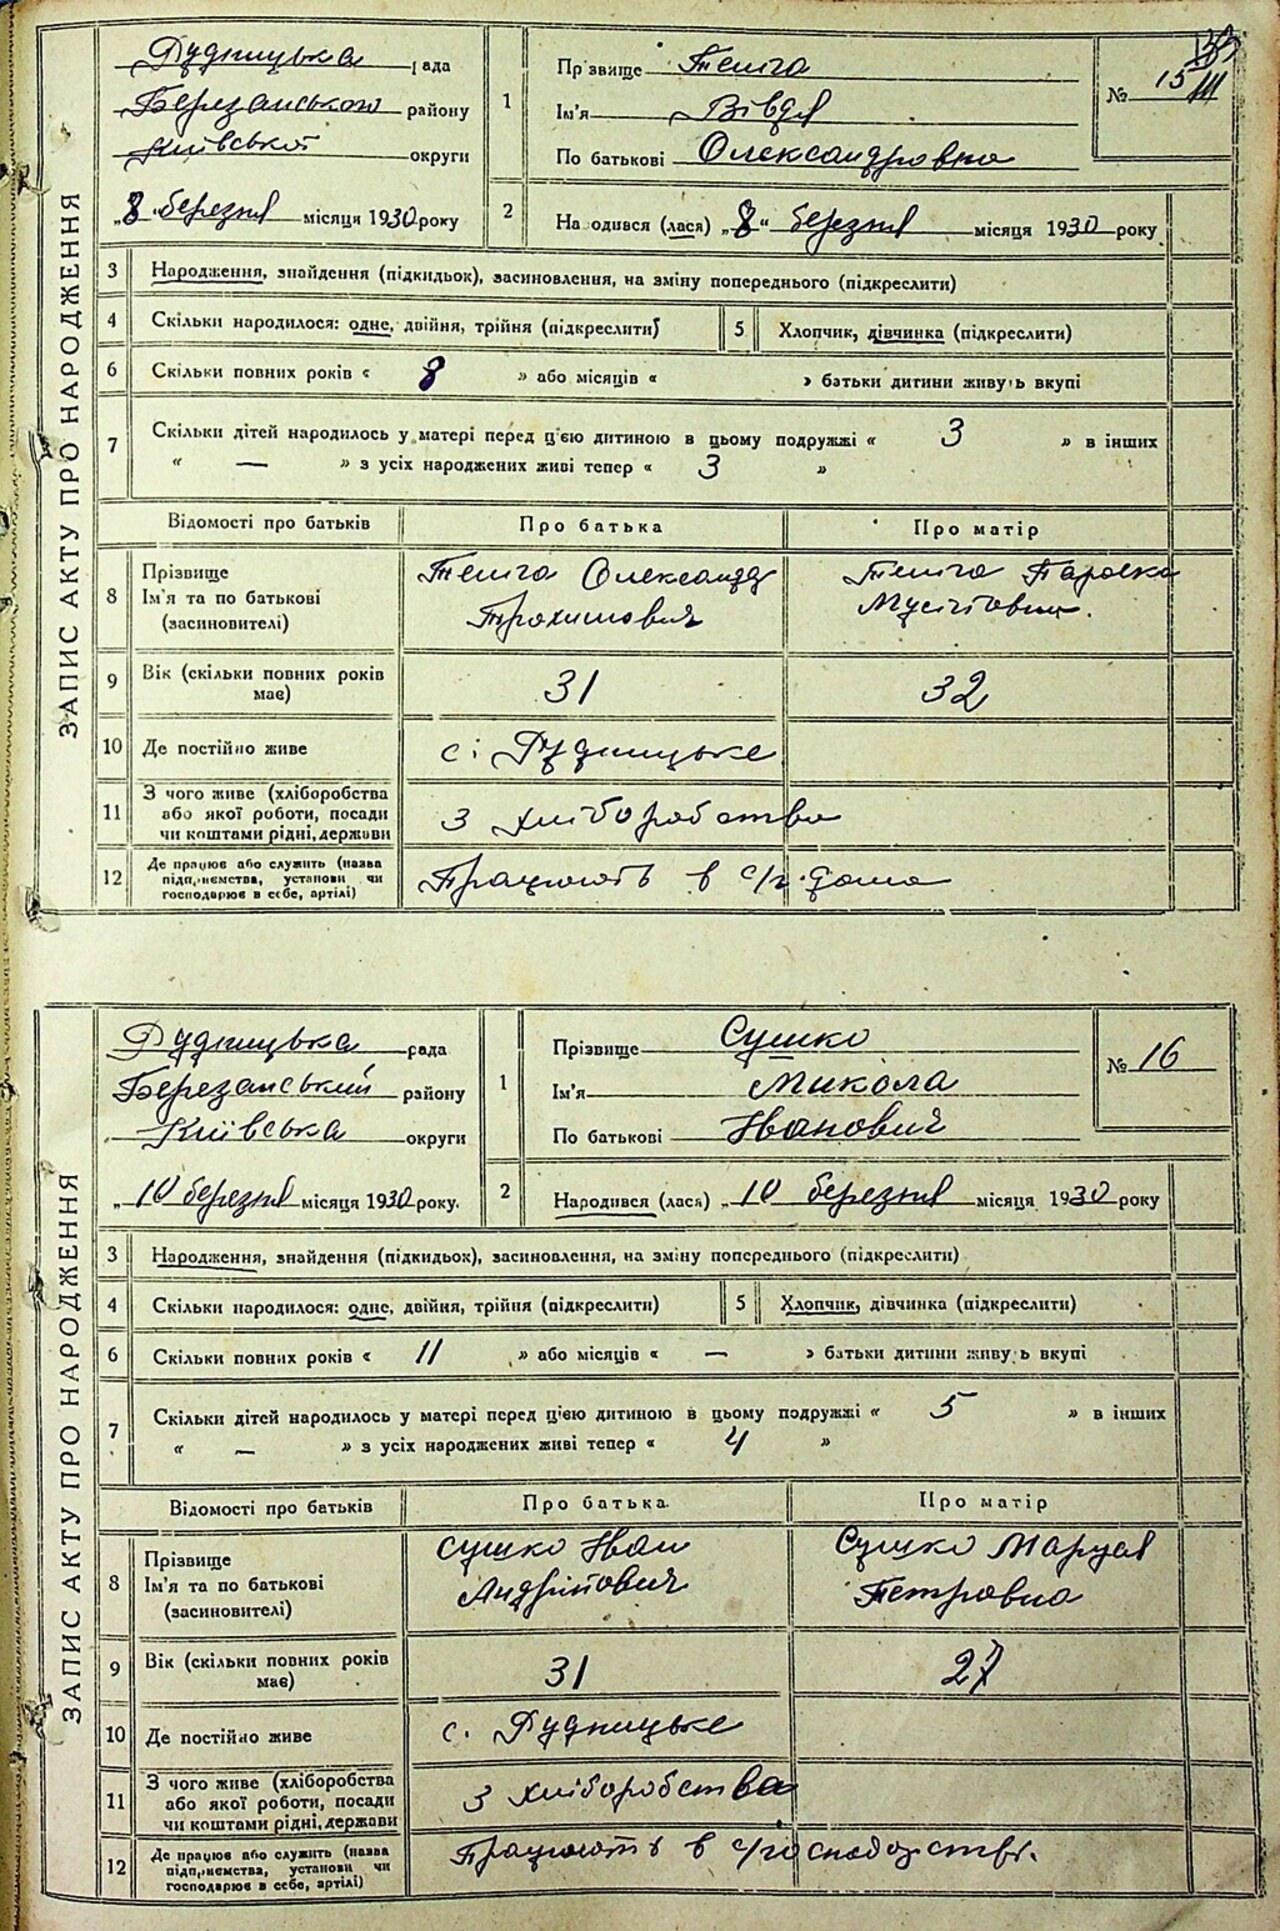 ЗАПИС АКТУ ПРО НАРОДЖЕННЯ
Рудницька рада
Березанського району
Київської округи
„8“ березня місяця 1930 року
1
Прізвище Теліга
Ім'я Вівдя
По батькові Олександровна
№ 15
2
Народився (лася) „8“ березня місяця 1930 року
3 Народження, знайдення (підкидьок), засиновлення, на зміну попереднього (підкреслити)
4 Скільки народилося: одне, двійня, трійня (підкреслити) 5 Хлопчик, дівчинка (підкреслити)
6 Скільки повних років « 8 » або місяців « » батьки дитини живуть вкупі
7 Скільки дітей народилось у матері перед цією дитиною в цьому подружжі « 3 » в інших
« — » з усіх народжених живі тепер « 3 »
Відомості про батьків Про батька Про матір
8 Прізвище
Ім'я та по батькові
(засиновителі)
Теліга Олександр
Трохимович
Теліга Параска
Мусіївна.
9 Вік (скільки повних років
має)
31 32
10 Де постійно живе с. Рудницьке
11 З чого живе (хліборобства
або якої роботи, посади
чи коштами рідні, держави
З хліборобства
12 Де працює або служить (назва
підприємства, установи чи
господарює в себе, артілі)
Працюють в с/г.
ЗАПИС АКТУ ПРО НАРОДЖЕННЯ
Рудницька рада
Березанський району
Київська округи
„10 березня місяця 1930 року.
1
Прізвище Сушко
Ім'я Микола
По батькові Іванович
№ 16
2
Народився (лася) „10 березня місяця 1930 року
3 Народження, знайдення (підкидьок), засиновлення, на зміну попереднього (підкреслити)
4 Скільки народилося: одне, двійня, трійня (підкреслити) 5 Хлопчик, дівчинка (підкреслити)
6 Скільки повних років « 11 » або місяців « — » батьки дитини живуть вкупі
7 Скільки дітей народилось у матері перед цією дитиною в цьому подружжі « 5 » в інших
« — » з усіх народжених живі тепер « 4 »
Відомості про батьків Про батька Про матір
8 Прізвище
Ім'я та по батькові
(засиновителі)
Сушко Іван
Андрійович
Сушко Маруся
Петровна
9 Вік (скільки повних років
має)
31 27
10 Де постійно живе с. Рудницьке
11 З чого живе (хліборобства
або якої роботи, посади
чи коштами рідні, держави
З хліборобства
12 Де працює або служить (назва
підприємства, установи чи
господарює в себе, артілі)
Працюють в с/господарстві.